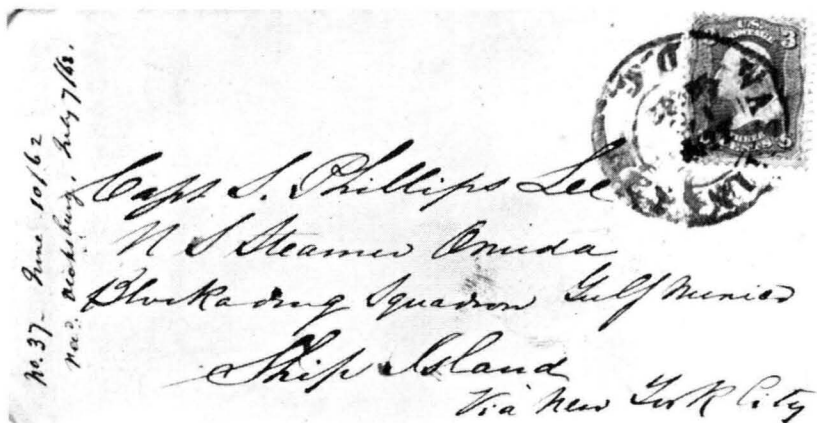 No. 37 - June 10/62
rec'd Vicksburg, July 7/62.
Capt S. Phillips Lee
U S Steamer Oneida
Blockading Squadron Gulf Mexico
Ship Island
Via New York City
U.S. POSTAGE
3 3
THREE CENTS